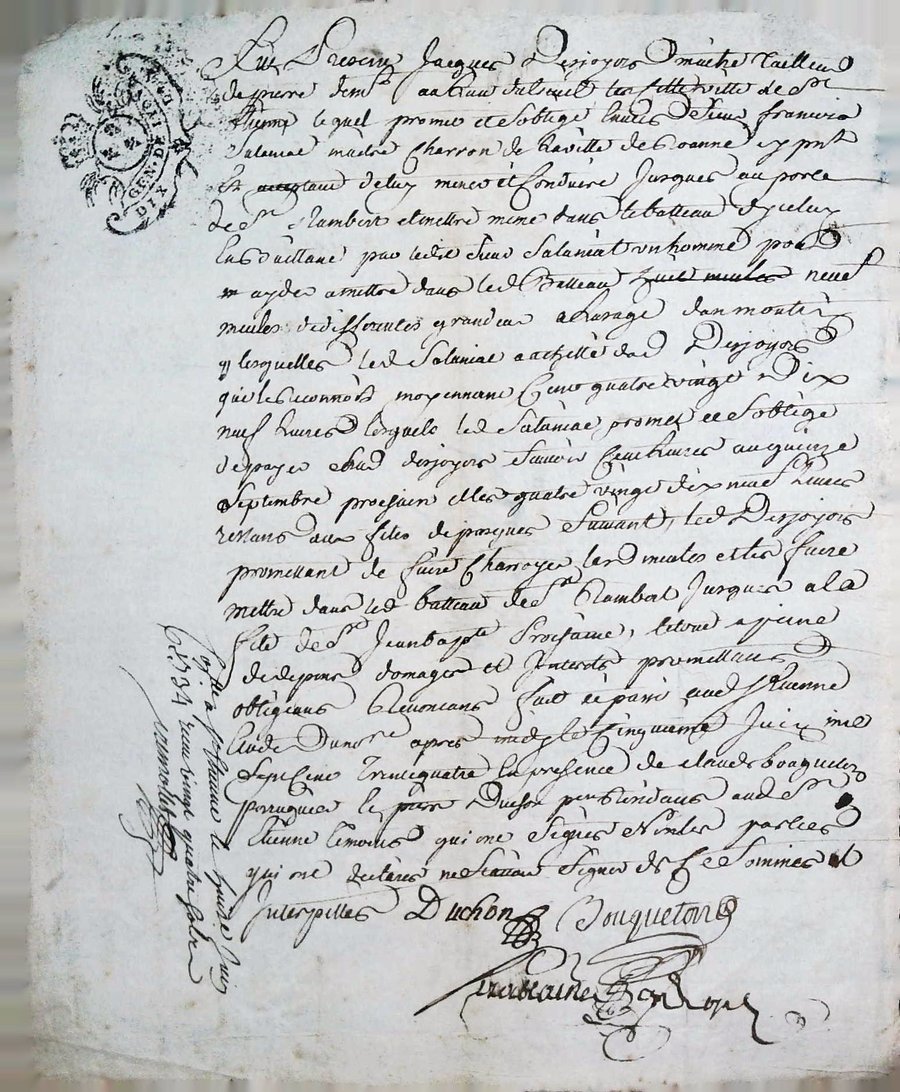 GEN. DE
DIX
Fut Present Jacques Desjoyos maitre tailleur
de pierre
Etienne lequel promet et soblige envers Sieur francois
Salaniat maitre Charron de la ville de Roanne
mener et Conduire Jusques au port
de St Rambert et mettre meme dans le batteau
par ledit Sieur Salaniat un homme pour
ayder a mettre dans led Batteau huit meules neuf
meules de differentes grandeur
lesquelles led Salaniat a achepté dud Desjoyos
qui les reconnoit moyennant Cent quatre vingt Dix
neuf Livres lesquels led Salaniat promet et soblige
de payer aud desjoyos Scavoir Cent livres au quinze
Septembre prochain et les quatre vingt dix neuf Livres
restans aux fetes de pasques Suivant, led Desjoyos
promettant de faire Charroyer lesd meules et les faire
mettre dans led batteau de St Rambert Jusques a la
fete de St Jean bapte Prochaine, le tout a peine
de depens domages et Interets promettans
obligeans Renonceans fait et passé aud St Etienne
Etude Du nre apres midy le Cinquieme Juin mil
Sept Cent Trente quatre En presence de claude bouqueton
perruquier le pierre Duchon aud St
Etienne temoins qui ont Signés Non les parties
qui ont declarés ne Scavoir Signer de Ce Sommés et
Interpellés Duchon Bouqueton
a St Etienne le quinze Juin
1734 vingt quatre